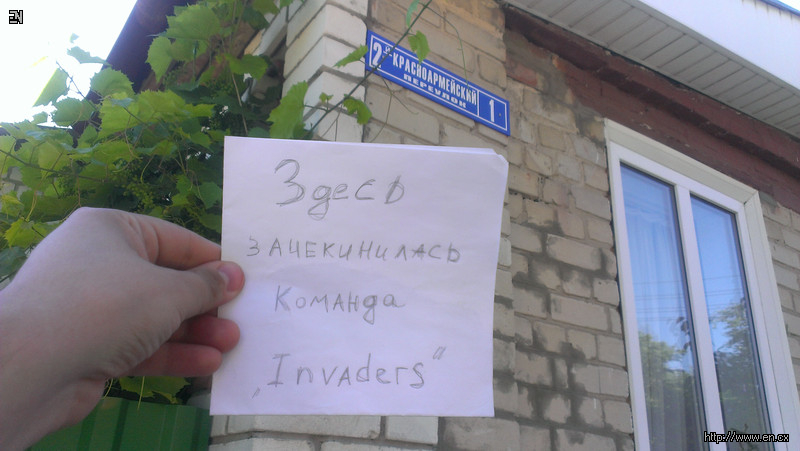 EN
2-й КРАСНОАРМЕЙСКИЙ
ПЕРЕУЛОК
1
Здесь
ЗАЧЕКИНИЛАСЬ
Команда
„Invaders"
http://www.en.cx